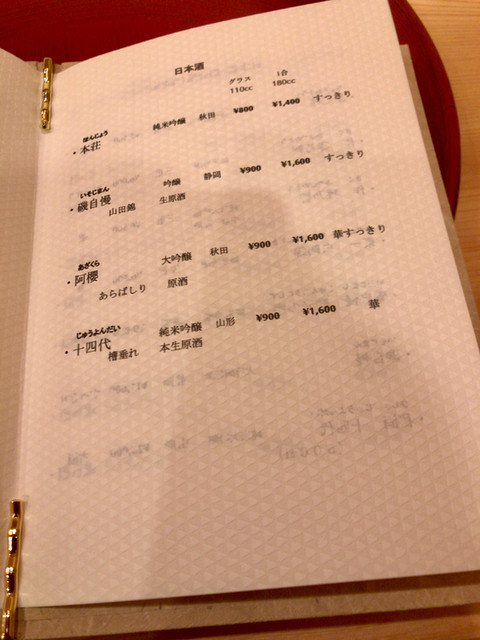 日本酒
グラス 1合
110cc 180cc
ほんじょう
・本荘 純米吟醸 秋田 ¥800 ¥1,400 すっきり
いそじまん
・磯自慢 吟醸 静岡 ¥900 ¥1,600 すっきり
山田錦 生原酒
あざくら
・阿櫻 大吟醸 秋田 ¥900 ¥1,600 華すっきり
あらばしり 原酒
じゅうよんだい
・十四代 純米吟醸 山形 ¥900 ¥1,600 華
槽垂れ 本生原酒